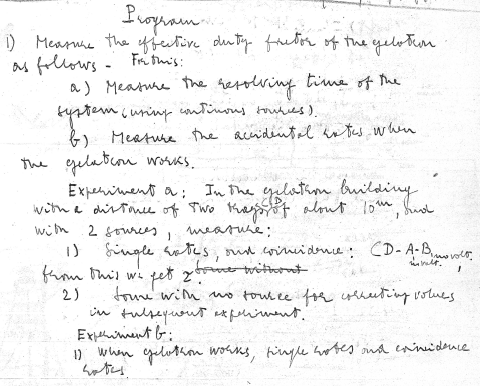 Program
1) Measure the effective duty factor of the gelatron
as follows - For this:
a) Measure the resolving time of the
system (using continous sources).
b) Measure the accidental rates when
the gelatron works.
Experiment a: In the gelatron building
with a distance of two trays of about 10m, and
with 2 sources, measure:
1) Single rates, and coincidence: CD-A-B
from this we get
2) Some with no source for correcting values
in subsequent experiment.
Experiment b:
1) when gelatron works, single rates and coincidence
rates.